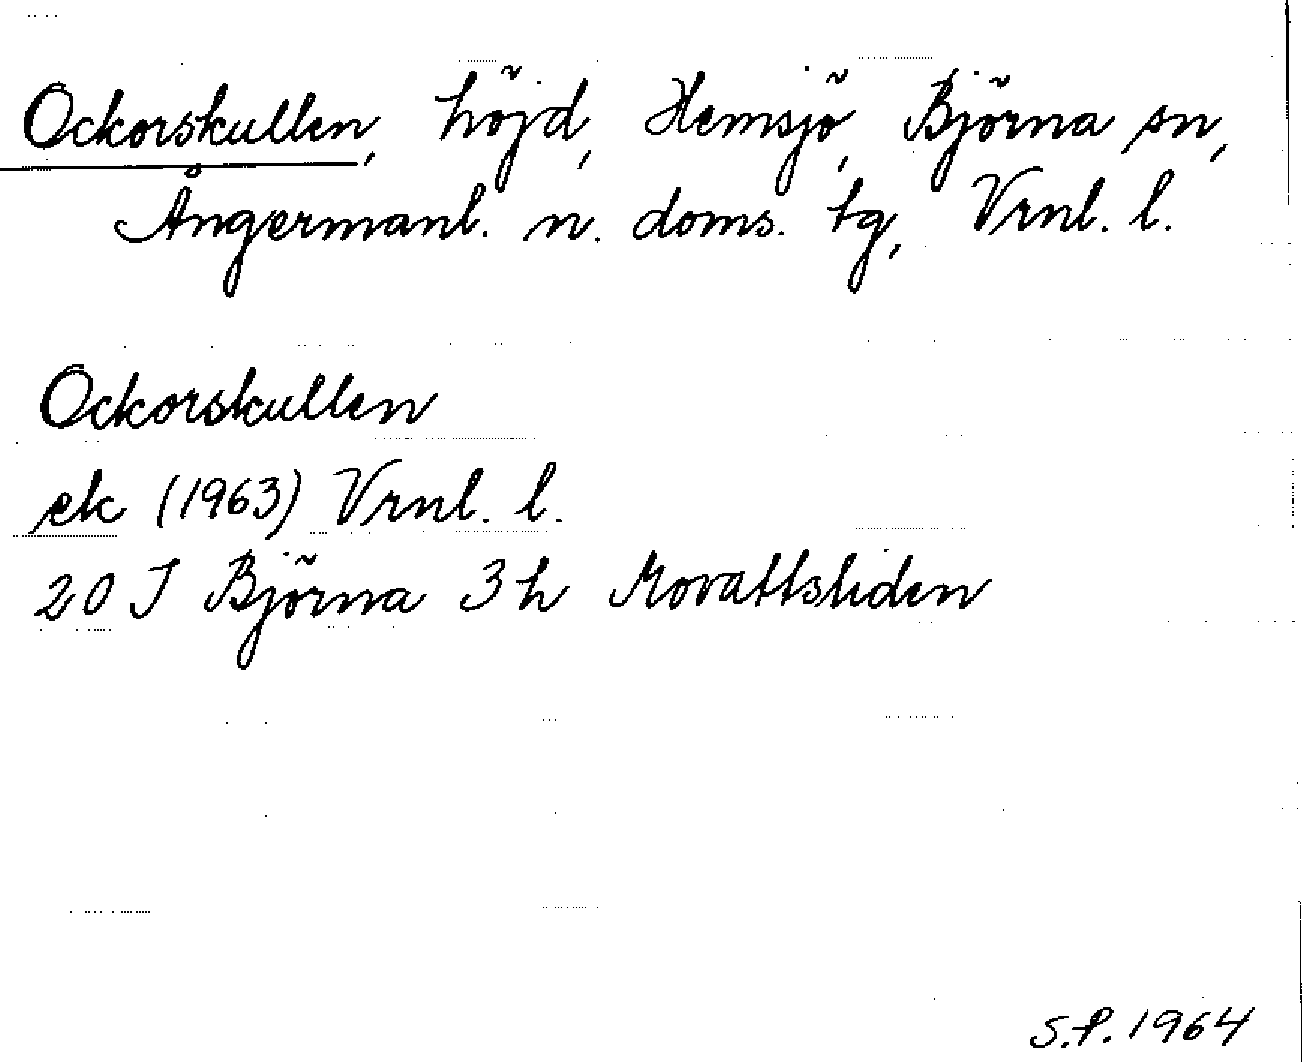 Ockorskullen, höjd, Hemsjö, Björna sn,
Ångermanl. n. doms. tg, Vrnl. l.
Ockorskullen
ek (1963) Vrnl. l.
20 J Björna 3 h Movattsliden
S.P. 1964